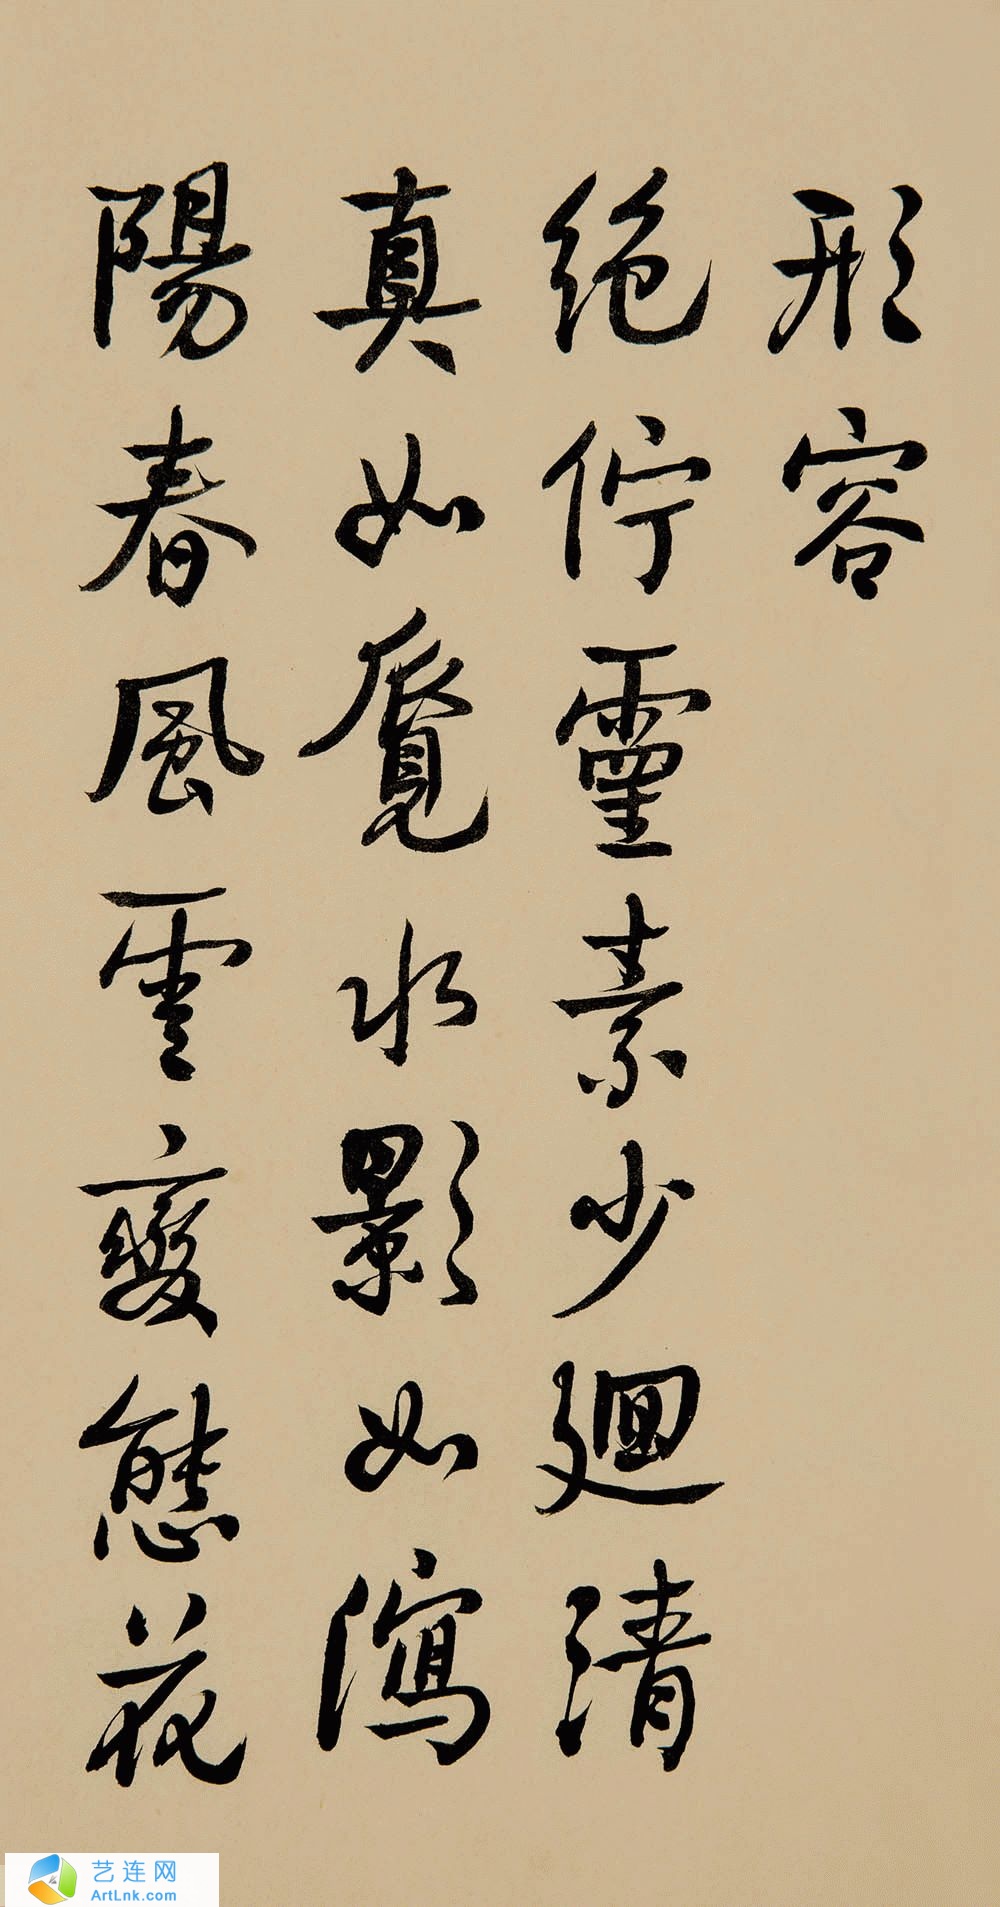 形容
絶佇靈素少廻清
真如覓水影如瀉
陽春風雲變態花
艺连网
ArtLnk.com